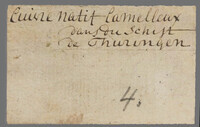 Cuivre natif Lamelleux
dans du Schist
de Thuringen
4.